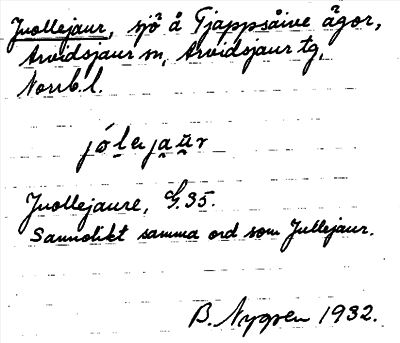 Juollejaur, sjö å Tjappsåive ägor,
Arvidsjaur sn, Arvidsjaur tg,
Norrb.l.
jó̱lejau̯r
Juollejaure, G.35.
Sannolikt samma ord som Jullejaur.
B. Nygren 1932.